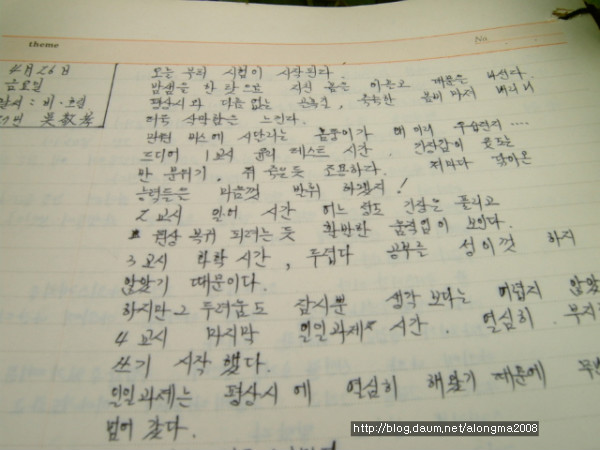 theme
No.
4月 26日
금요일
날씨 : 비·흐림
오늘 부터 시험이 시작된다.
밤샘을 한 탓으로 지친 몸을 이끌고 대문을 나선다.
평상시와 다름 없는 봄비 마저 내리니
더욱 삭막함은 느낀다.
만원 버스에 시달리는 왜 이리 우습던지 ....
드디어 1교시 테스트 시간. 긴장감이 흐르는
만 분위기, 쥐 죽은듯 조용하다. 저마다 닦아온
능력들은 마음껏 발휘 하겠지!
2교시 일어 시간 어느 정도 긴장은 풀리고
평상 복귀 되려는 듯 활발한 움직임이 보인다.
3교시 화학 시간, 두렵다 공부를 성의껏 하지
않았기 때문이다.
하지만 그 두려움도 잠시뿐 생각 보다는 어렵지 않았
4교시 마지막 일일과제 시간. 열심히
쓰기 시작 했다.
일일과제는 평상시에 열심히 해왔기 때문에 무난
넘어 갔다.
http://blog.daum.net/alongma2008